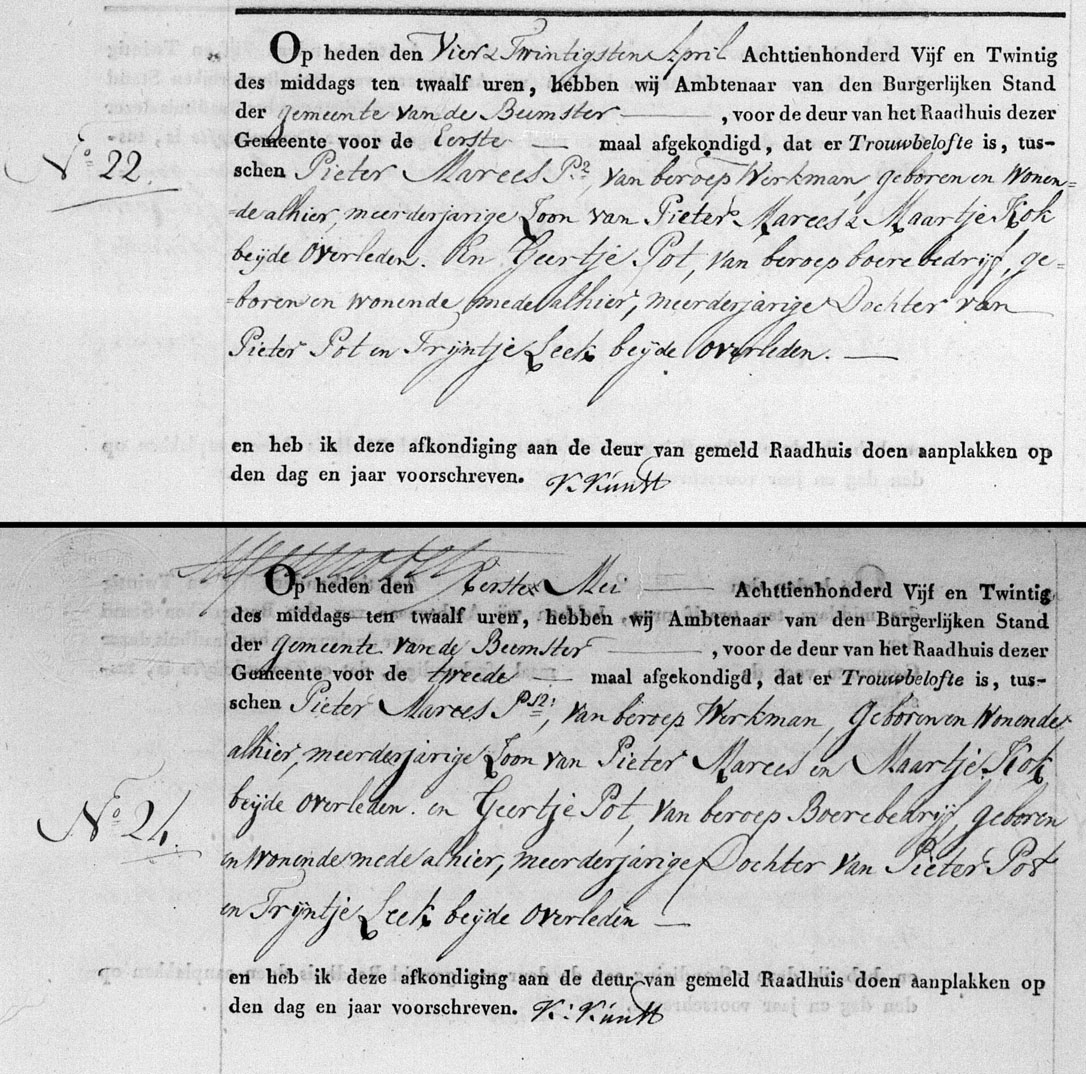 Op heden den Vier & Twintigsten April Achttienhonderd Vijf en Twintig
des middags ten twaalf uren, hebben wij Ambtenaar van den Burgerlijken Stand
der gemeente van de Beemster , voor de deur van het Raadhuis dezer
Gemeente voor de Eerste maal afgekondigd, dat er Trouwbelofte is, tus-
No 22.
schen Pieter Marees Pz van beroep Werkman, geboren en Wonen=
=de alhier, meerderjarige Zoon van Pieter Marees & Maartje Kok
beijde Overleden. En Geertje Pot, van beroep boere bedrijf, ge=
=boren en wonende mede alhier, meerderjarige Dochter van
Pieter Pot en Trijntje Leek beijde overleden. —
en heb ik deze afkondiging aan de deur van gemeld Raadhuis doen aanplakken op
den dag en jaar voorschreven. K Kunst
Op heden den Eerste Mei Achttienhonderd Vijf en Twintig
des middags ten twaalf uren, hebben wij Ambtenaar van den Burgerlijken Stand
der gemeente van de Beemster , voor de deur van het Raadhuis dezer
Gemeente voor de tweede maal afgekondigd, dat er Trouwbelofte is, tus-
schen Pieter Marees Psz: van beroep Werkman, Geboren en Wonende
alhier, meerderjarige Zoon van Pieter Marees en Maartje Kok
beijde overleden. en Geertje Pot, van beroep Boere bedrijf, geboren
No 24.
en Wonende mede alhier, meerderjarige Dochter van Pieter Pot
en Trijntje Leek beijde overleden —
en heb ik deze afkondiging aan de deur van gemeld Raadhuis doen aanplakken op
den dag en jaar voorschreven. K: Kunst